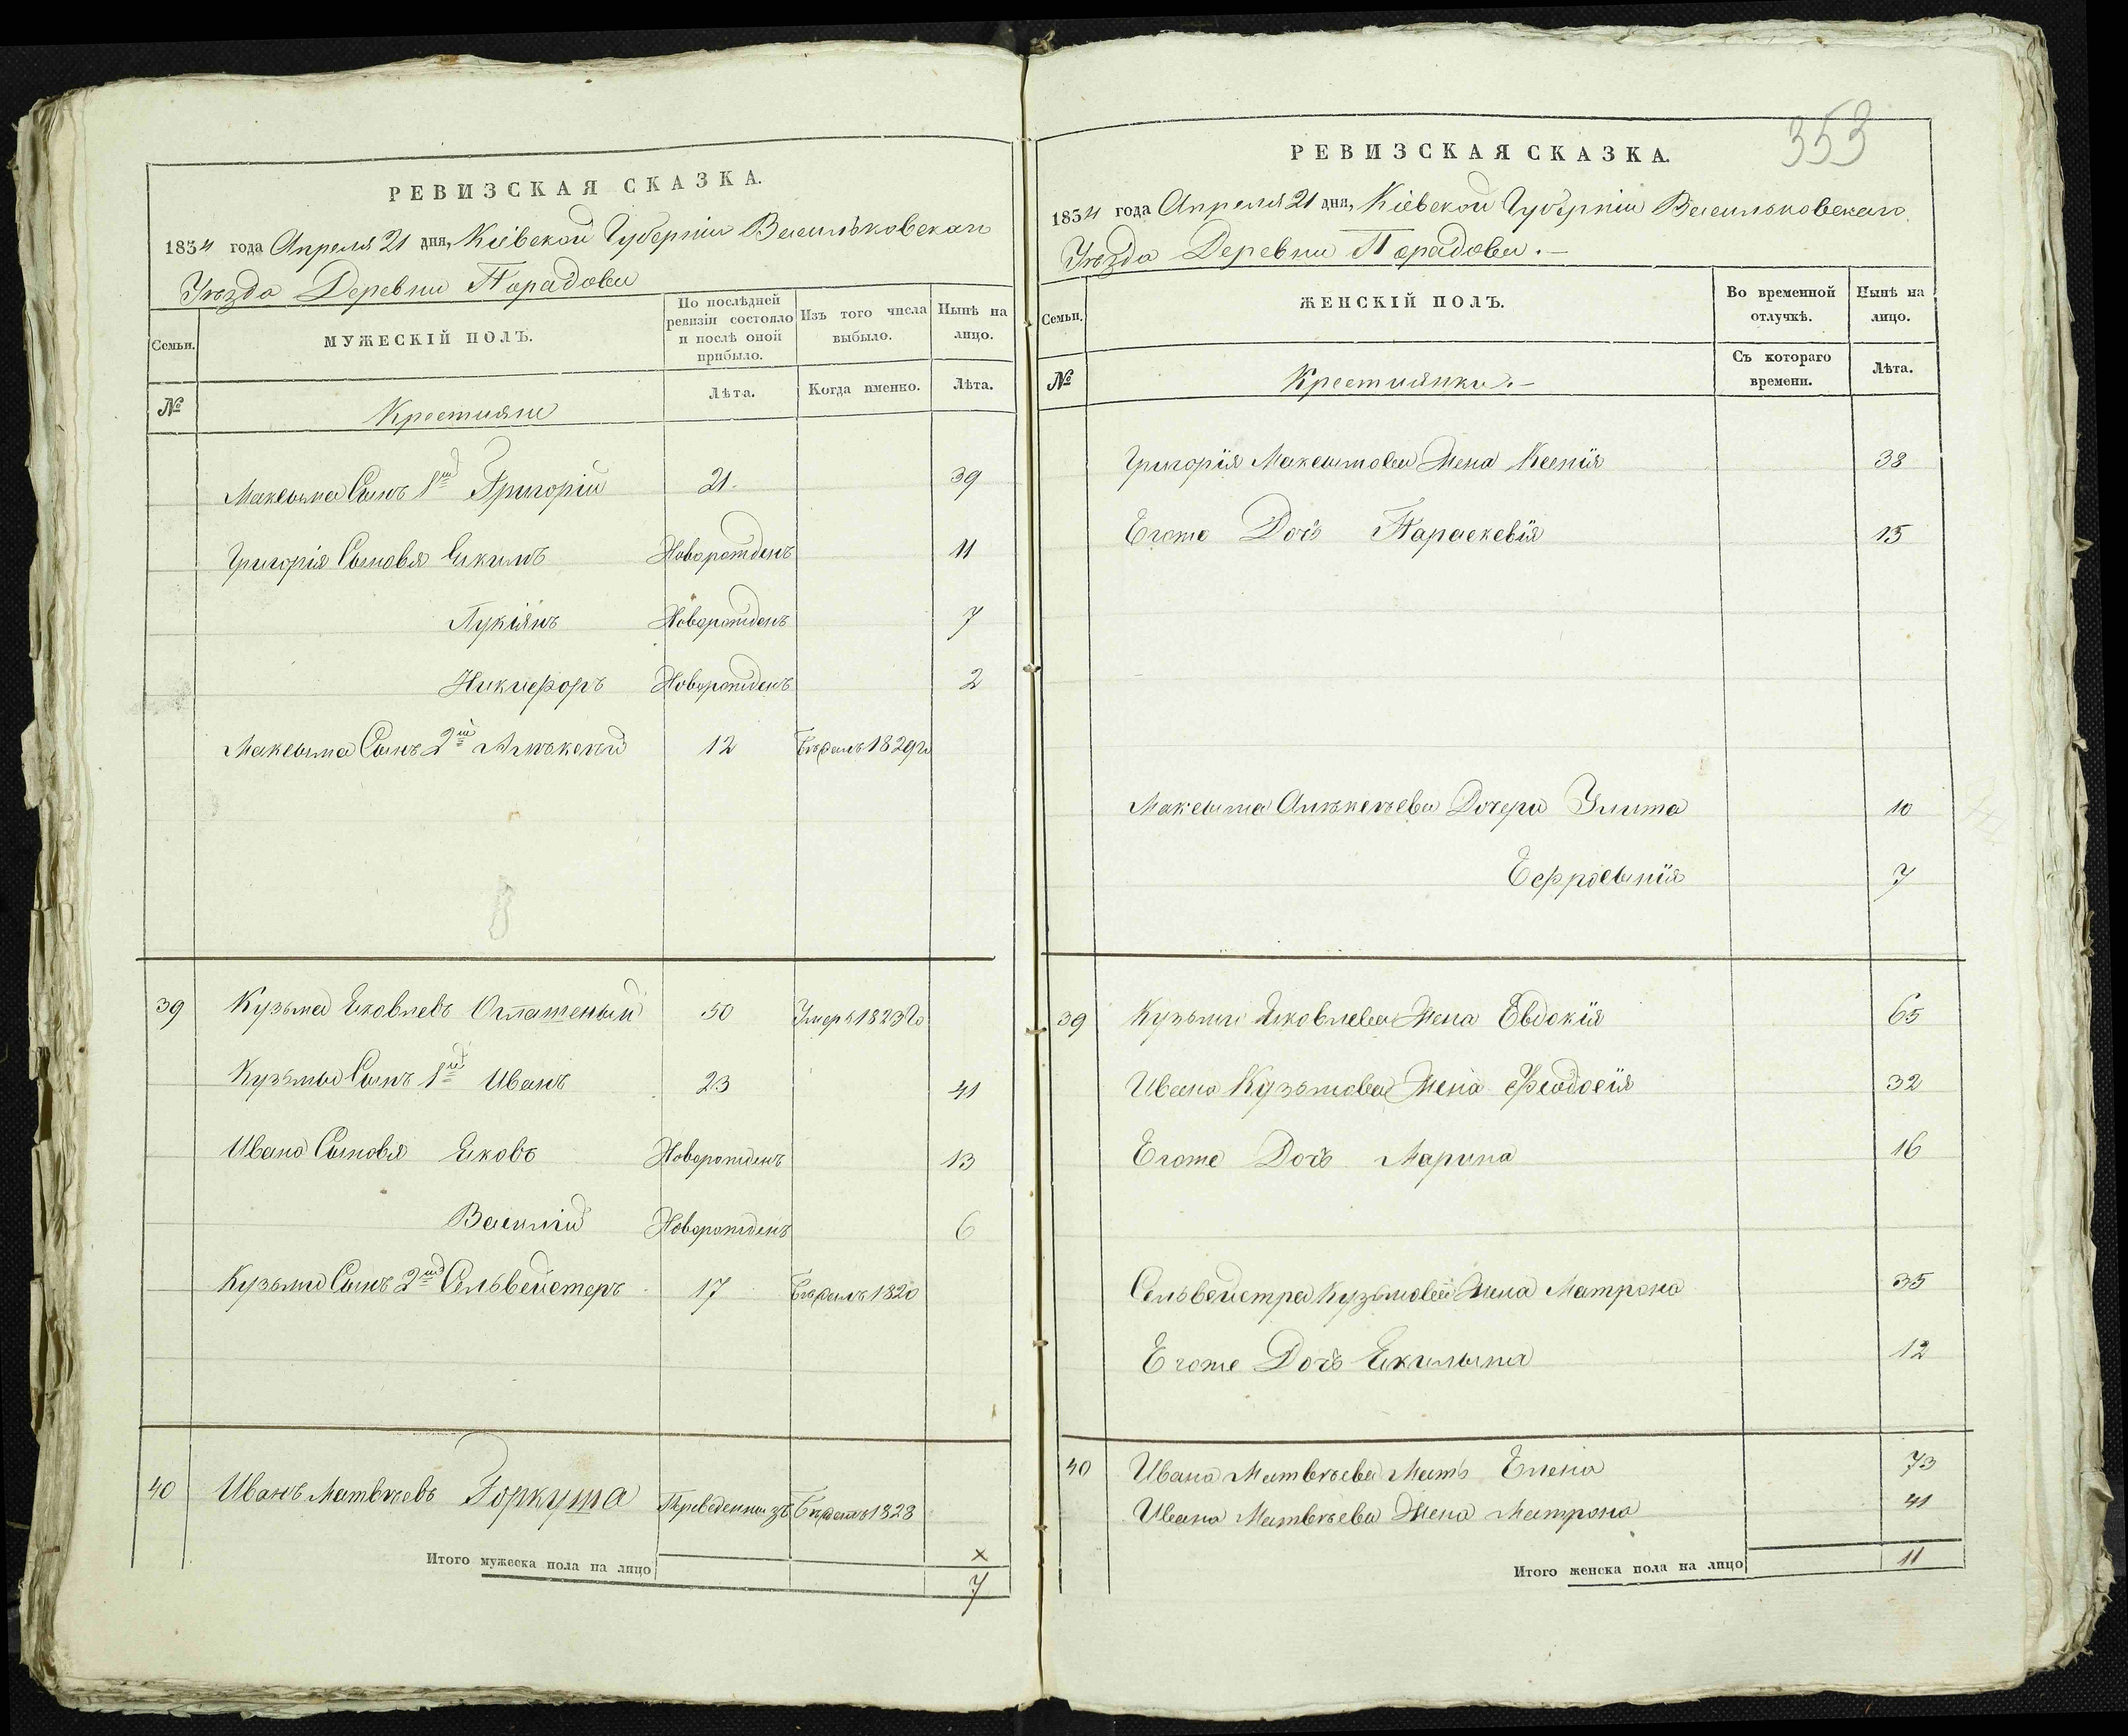 РЕВИЗСКАЯ СКАЗКА.
1834 года Апреля 21 дня, Кіевской Губерніи Васильковскаго
Уѣзда Деревни Порадовки
Семьи.
МУЖЕСКІЙ ПОЛЪ.
По послѣдней ревизіи состояло и послѣ оной прибыло.
Изъ того числа выбыло.
Нынѣ на лицо.
№
Крестияне
Лѣта.
Когда именно.
Лѣта.
Максыма Сынъ 1й Григорій 21. 39
Григорія Сыновя Якимъ Новорожденъ 11
Лукіянъ Новорожденъ 7
Никифоръ Новорожденъ 2
Максыма Сынъ 2й 12 1829го
39 Кузьма Яковлевъ Оглашеный 50 Умеръ 1823го
Кузьмы Сынъ 1й Иванъ 23 41
Ивана Сыновя Яковъ Новорожденъ 13
Василій Новорожденъ 6
Кузьмы Сынъ 2й Сельвейстеръ 17 1820
40 Иванъ Матвѣевъ Горкуша 1828
Итого мужеска пола на лицо
х
7
353
РЕВИЗСКАЯ СКАЗКА.
1834 года Апреля 21 дня, Кіевской Губерніи Васильковскаго
Уѣзда Деревни Порадовки.-
Семьи.
ЖЕНСКІЙ ПОЛЪ.
Во временной отлучкѣ.
Нынѣ на лицо.
№
Крестиянки.-
Съ котораго времени.
Лѣта.
Григорія Максымова Жена Ксенія 38
Егоже Дочъ Параскевія 15
Максыма Дочери Улита 10
Ефросынія 7
39 Кузьмы Яковлева Жена Евдокія 65
Ивана Кузьмова Жена Феодосія 32
Егоже Дочъ Марина 16
Сельвейстра Кузьмова Жена Матрона 35
Егоже Дочъ Якилына 12
40 Ивана Матвѣева Мать Елена 73
Ивана Матвѣева Жена Матрона 41
Итого женска пола на лицо 11